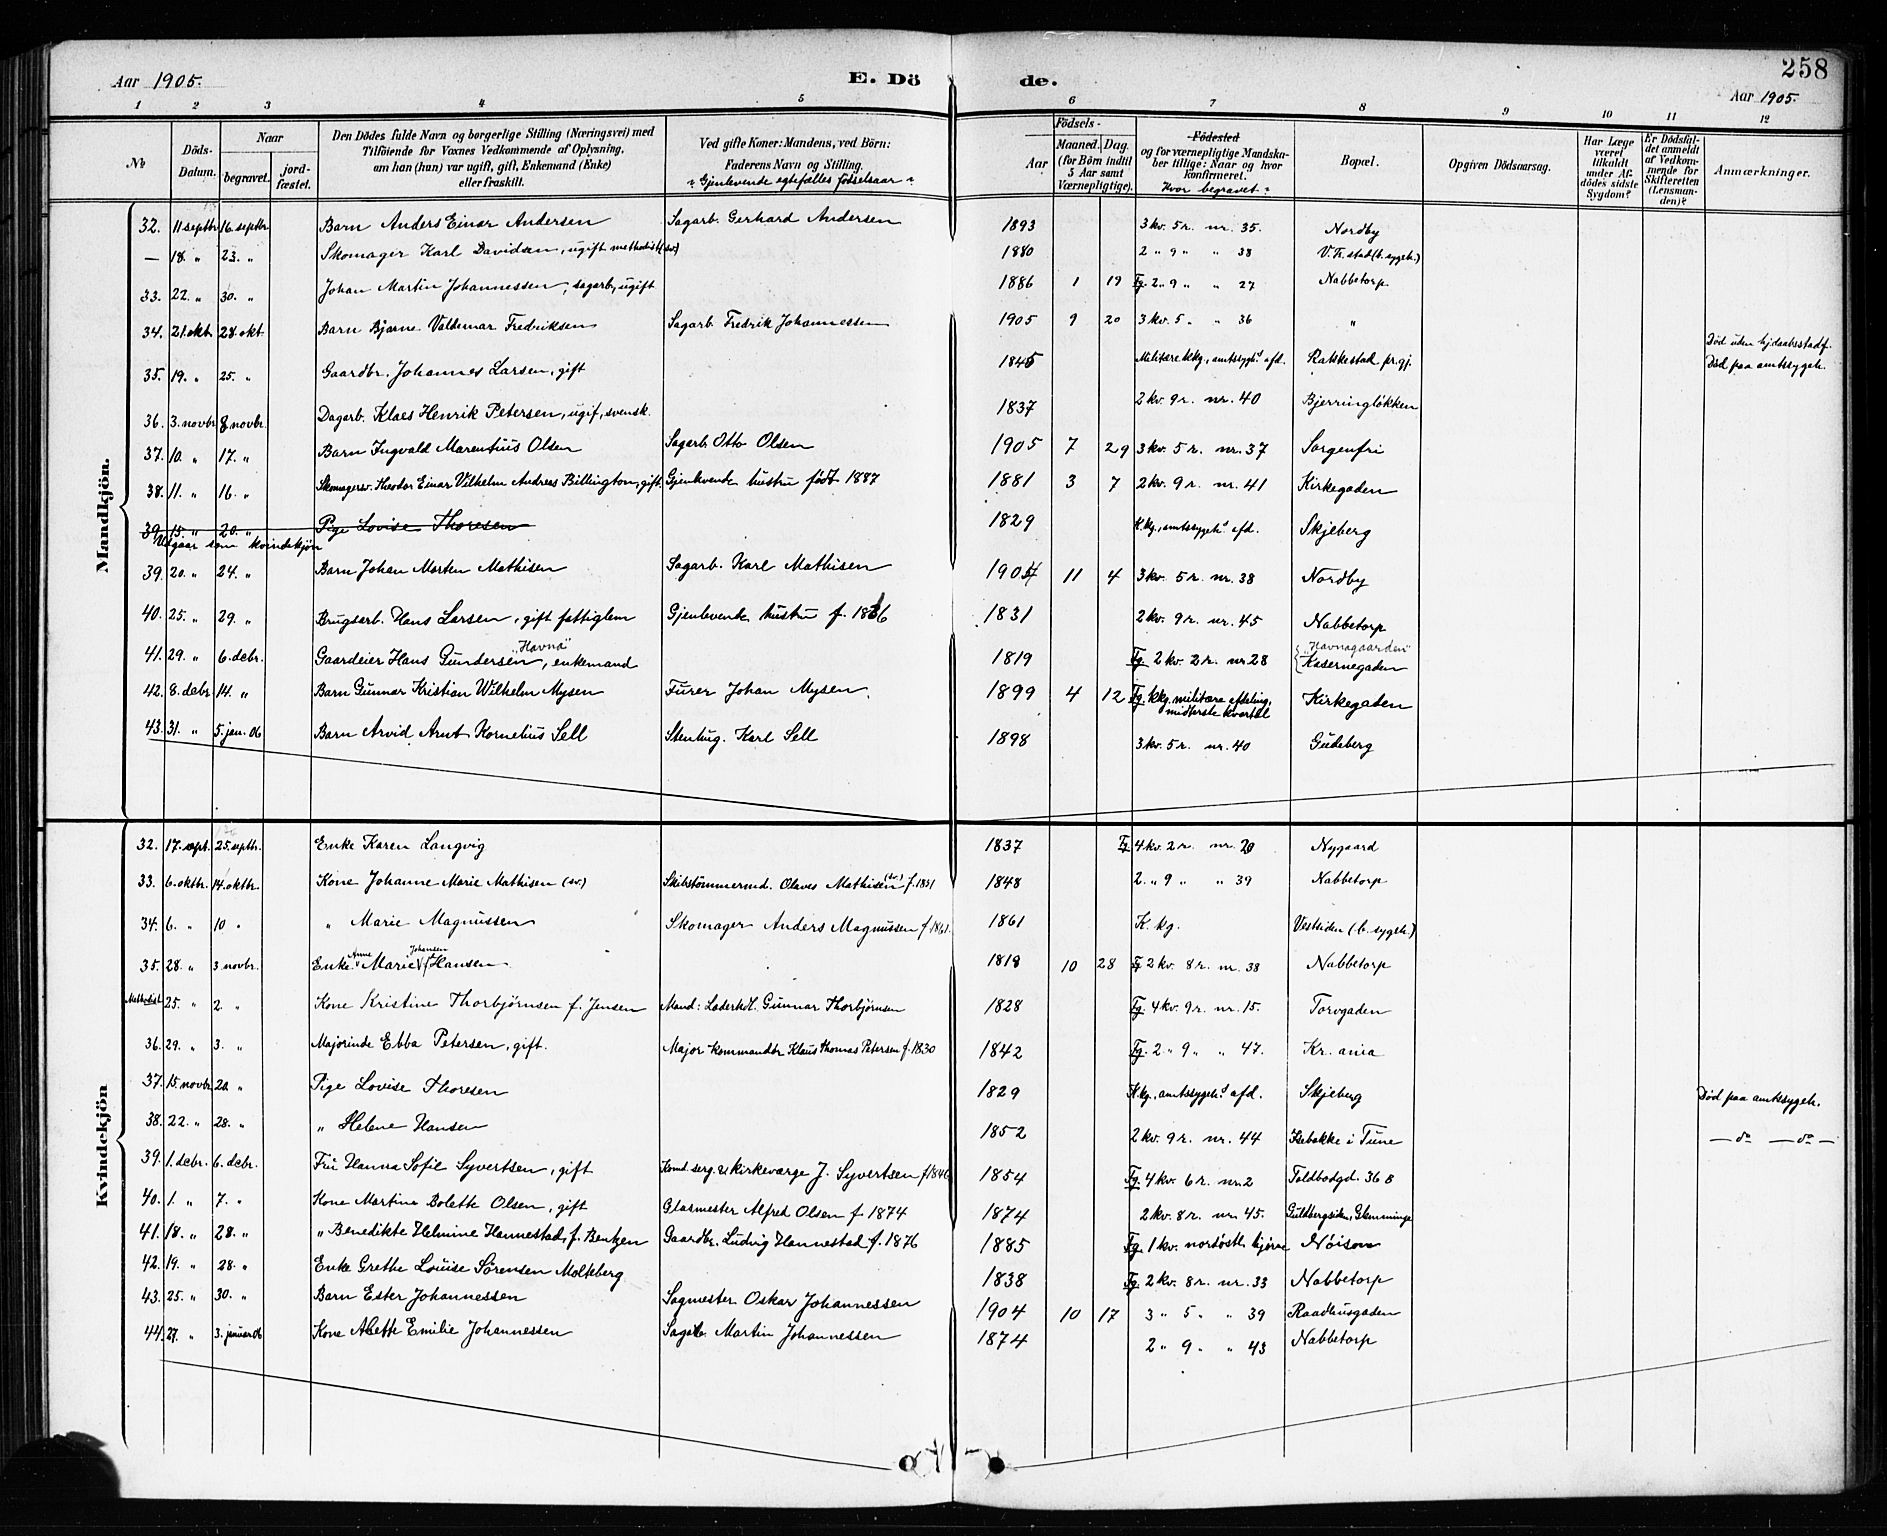 Aar 1905. E. Dö de. 258
Aar 1905.
1 2 3 4 5 6 7 8 9 10 11 12
No
Döds-Datum.
Naar
begravet.
jord-fæstet.
Den Dödes fulde Navn og borgerlige Stilling (Næringsvei) med
Tilföiende for Voxnes Vedkommende af Oplysning,
om han (hun) var ugift, gift, Enkemand (Enke)
eller fraskilt.
Ved gifte Koner: Mandens, ved Börn:
Faderens Navn og Stilling.
Gjenlevende egtefælles fødselsaar
Födsels-
Aar
Maaned. Dag.
(for Börn indtil
5 Aar samt
Værnepligtige).
Födested
og for værnepligtige Mandska-
ber tillige: Naar og hvor
konfirmeret.
Hvor begravet
Bopæl.
Opgiven Dödsaarsag.
Har Læge
været
tilkaldt
under Af-
dödes sidste
Sygdom?
Er Dödsfal-
det anmeldt
af Vedkom-
mende for
Skifteretten
(Lensman-
den)?
Anmærkninger.
Mandkjön.
32. 11 septbr 16. septbr Barn Anders Einar Andersen Sagarb. Gerhard Andersen 1893 3 kv. 5 r. nr. 35. Nordby
— 18. " 23. " Skomager Karl Davidsen, ugift methodist (sv.) 1880 2 " 9 " " 38 V. Fr.stad (b. sygeh.)
33. 22. " 30. " Johan Martin Johannessen, sagarb, ugift 1886 1 19 Fg. 2 " 9 " " 27 Nabbetorp
34. 21. okt. 28. okt. Barn Bjarne Valdemar Fredriksen Sagarb. Fredrik Johannessen 1905 9 20 3 kv. 5 " " 36 "
35. 19. " 25. " Gaardbr. Johannes Larsen, gift 1845 Militære kkg., amtssygehs afd. Rakkestad pr.gj. Død paa amtssygeh.
36. 3. novbr 8 novbr. Dagarb. Klaes Henrik Petersen, ugif, svensk. 1837 2 kv. 9 r. nr. 40 Bjerringløkken
37. 10. " 17. " Barn Ingvald Marentius Olsen Sagarb. Otto Olsen 1905 7 29 3 kv. 5 r. nr. 37 Sorgenfri
38. 11. " 16. " Skomagersv. Theodor Einar Vilhelm Andreas Billington, gift Gjenlevende hustru født 1887 1881 3 7 2 kv. 9 r. nr. 41 Kirkegaden
39. 15. " 20. " Pige Lovise Thoresen 1829 K.kg., amtssygehs afd. Skjeberg
Udgaar som kvindekjøn
39. 20. " 24. " Barn Johan Morten Mathisen Sagarb. Karl Mathisen 1904 11 4 3 kv. 5 r. nr. 38 Nordby
40. 25. " 29. " Brugsarb. Hans Larsen, gift fattiglem Gjenlevende hustru f. 1836 1831 2 kv. 9 r. nr. 45 Nabbetorp
41. 29. " 6. debr. Gaardeier Hans Gundersen "Havna", enkemand 1819 Fg. 2 kv. 2 r. nr 28 "Havnagaarden" Kasernegaden
42. 8. debr. 14. " Barn Gunnar Kristian Wilhelm Mysen Furer Johan Mysen. 1899 4 12 Fg. kkg. militære afdeling, midterste kvartal Kirkegaden
43. 31. " 5. jan. 06 Barn Arvid Arnt Kornelius Sell Stenhug. Karl Sell 1898 3 kv. 5 r. nr. 40 Gudeberg
Kvindekjön
32. 17. sept. 25. septbr. Enke Karen Langvig 1837 Fg 4 kv. 2 r. nr. 20 Nygaard
33. 6. oktbr. 14. oktbr. Kone Johanne Marie Mathisen (sv.) Skibstømmermd. Olaves Mathisen (sv.) f. 1851 1848 2. " 9 " " 39 Nabbetorp
34. 6. " 10 " " Marie Magnussen Skomager Anders Magnussen f. 1861. 1861 K. kg. Vestsiden (b. sygeh.)
35. 28. " 3 novbr. Enke Anne Marie Johansen Hansen 1818 10 28 Fg 2 kv. 8 r. nr. 38 Nabbetorp
Methodist 25. " 2. " Kone Kristine Thorbjørnsen f. Jensen Mand: Loderkdt. Gunnar Thorbjørnsen 1828 Fg. 4 kv. 9 r. nr. 15. Torvgaden
36. 29. " 3. " Majorinde Ebba Petersen, gift. Major Kommandbr Klaus Thomas Petersen f. 1830 1842 Fg. 2 " 9 " " 47. Kr. ania
37. 15 novbr. 20. " Pige Lovise Thoresen 1829 K.kg., amtssygehs afd. Skjeberg Død paa amtssygeh.
38. 22. " 28. " " Helene Hansen 1852 2 kv. 9 r. nr. 44 Isebakke i Tune — do — do —
39. 1. debr. 6. debr. Fru Hanna Sofie Syvertsen, gift Komd. serg. & kirkeværge J. Syvertsen f. 1846 1854 Fg. 4 kv. 6 r. nr. 2 Toldbodgd. 36 B
40. 1. " 7. " Kone Martine Bolette Olsen, gift Glasmester Alfred Olsen f. 1874 1874 2 kv. 8 r. nr. 45. Guldbergsiden, Glemminge
41. 18. " 28. " " Benedikte Helmine Hannestad, f. Bentzen Gaardbr. Ludvig Hannestad f. 1876 1885 Fg. 1 kv. nortøstl. hjørne
42. 19. " 28. " Enke Grethe Louise Sørensen Molteberg 1838 Fg. 2 kv. 8 r. nr. 33 Nabbetorp
43. 25. " 30. " Barn Ester Johannessen Sagmester Oskar Johannessen 1904 10 17 3 " 5 " " 39 Raadhusgaden
44. 27. " 3. januar 06 Kone Alette Emilie Johannessen Sagarb. Martin Johannessen 1874 2 " 9 " " 43 Nabbetorp